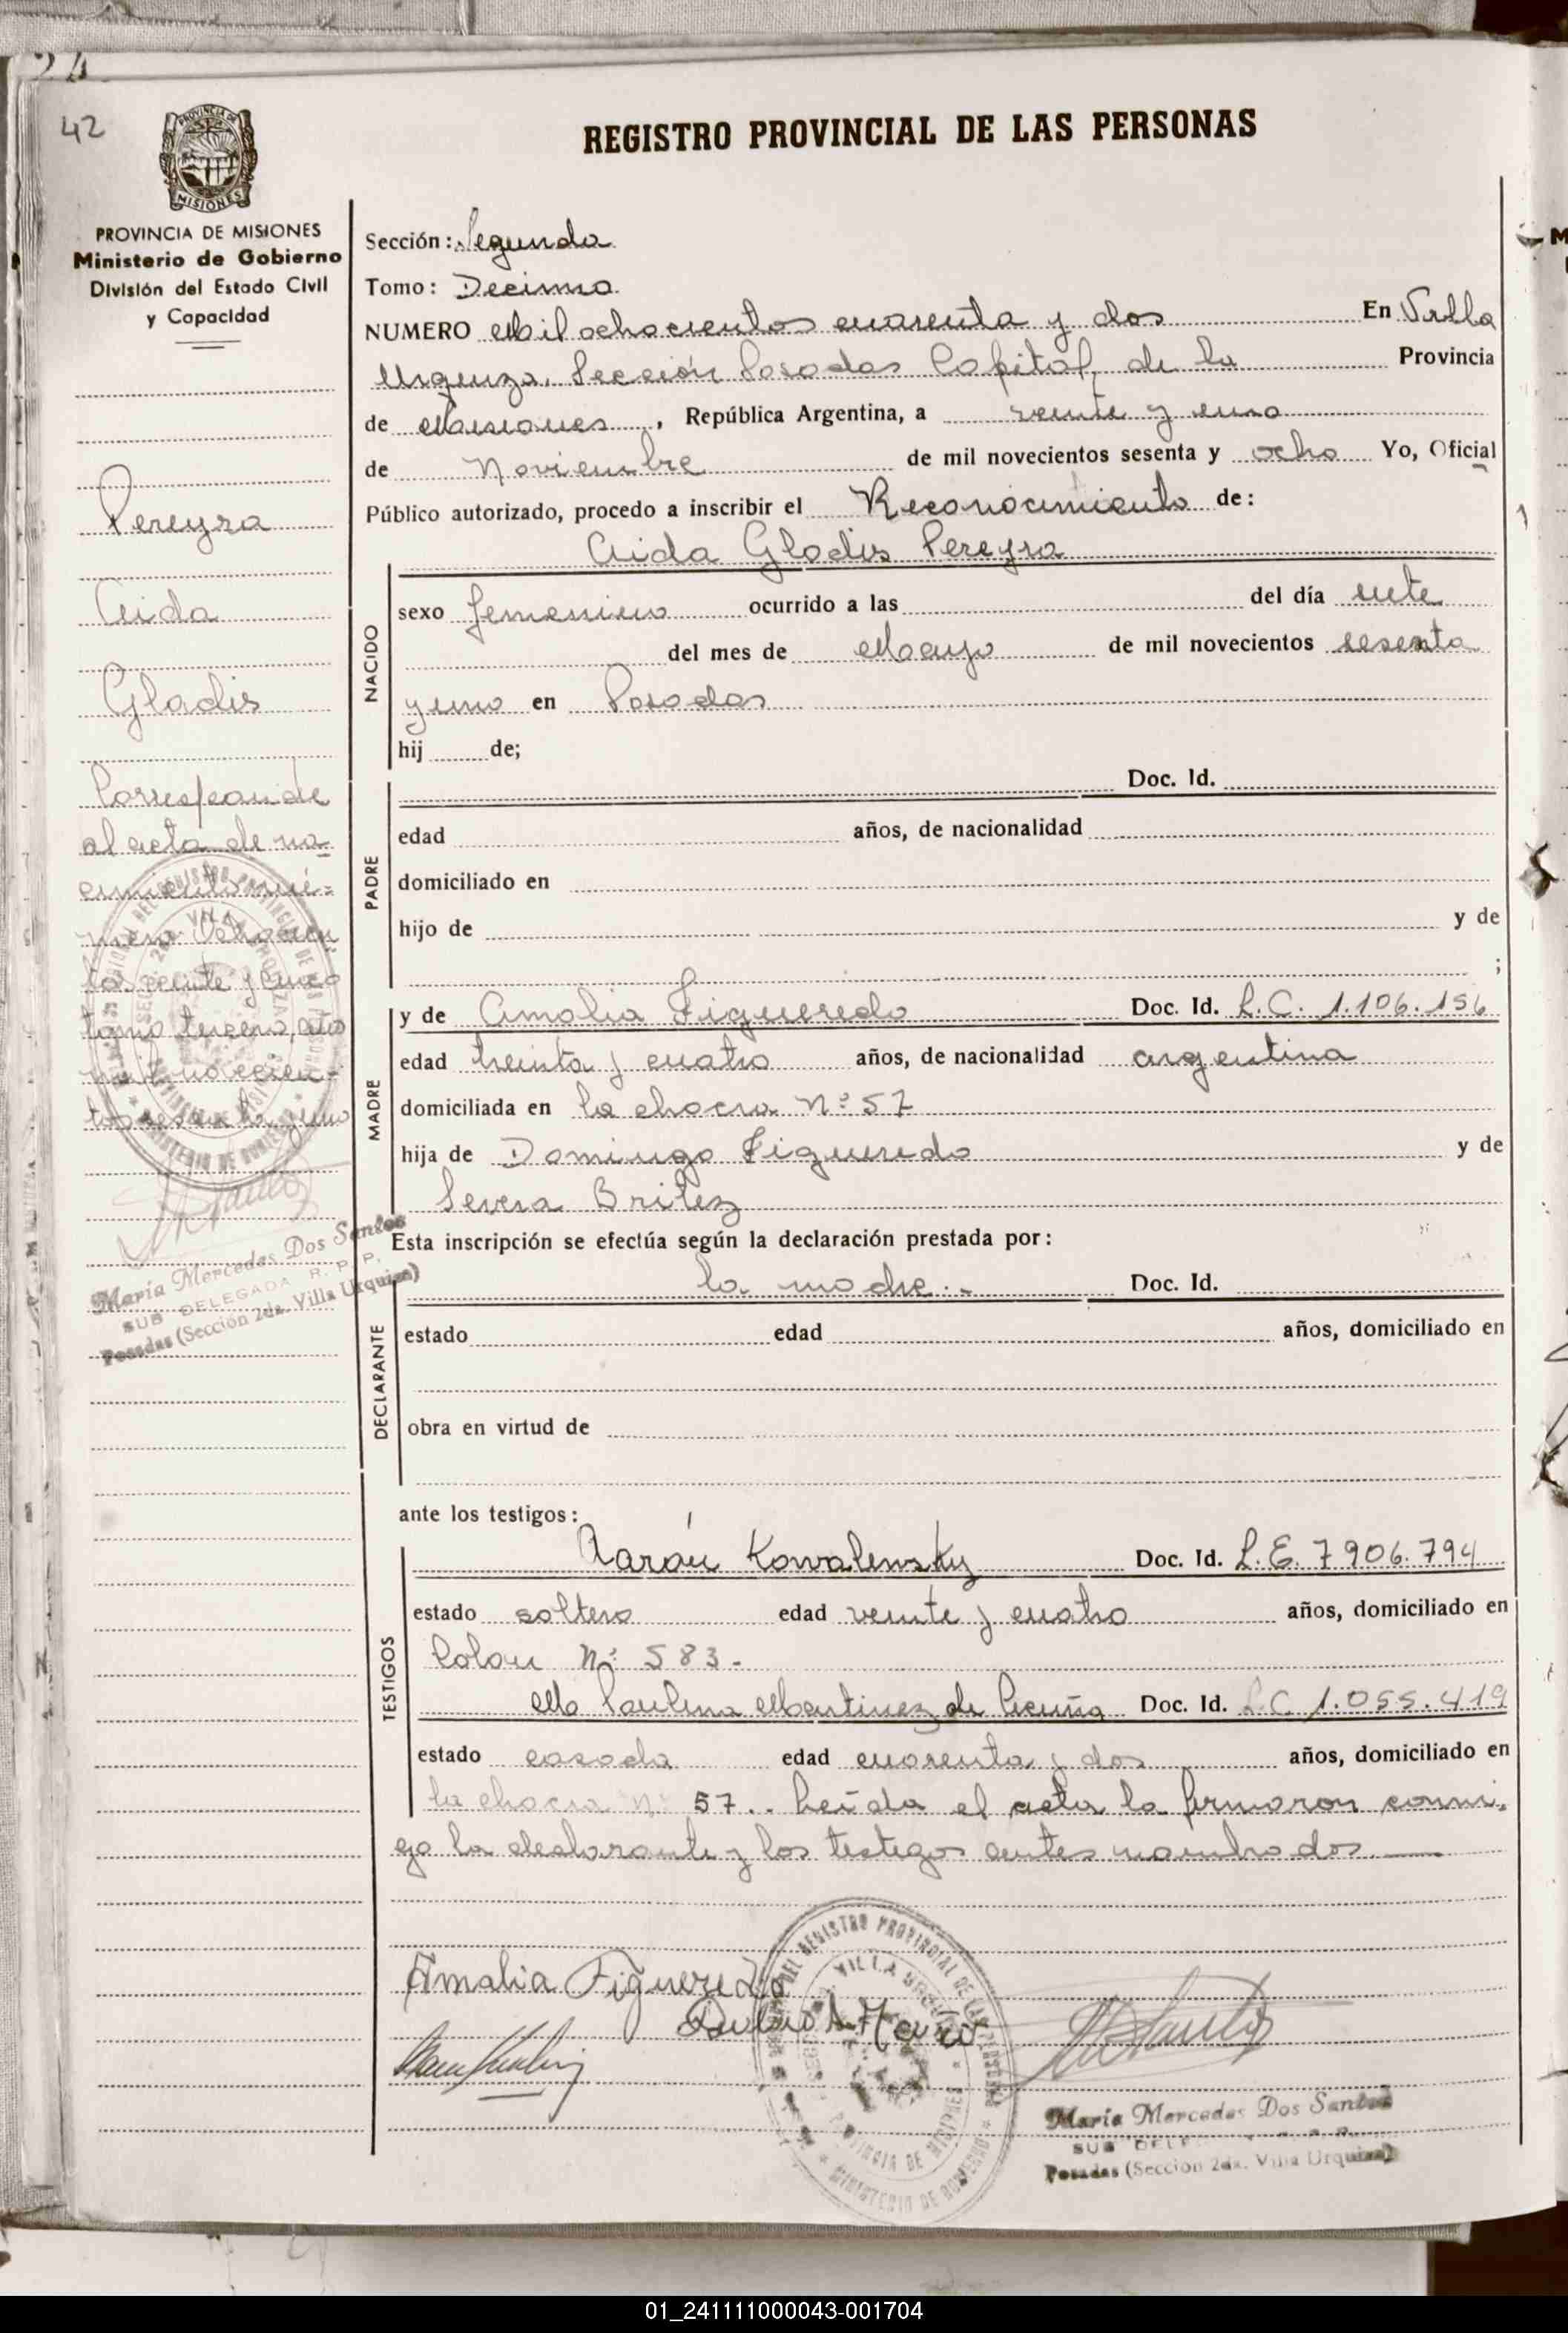 24
42
PROVINCIA DE MISIONES
REGISTRO PROVINCIAL DE LAS PERSONAS
PROVINCIA DE MISIONES
Ministerio de Gobierno
División del Estado Civil
y Capacidad
Pereyra
Aida
Gladis
Corresponde
al acta de na-
cimiento nú=
mero Ochocien
tos veinte y cinco
tomo tercero, año
mil novecien-
tos sesenta y uno
María Mercedes Dos Santos
SUB DELEGADA R. P. P.
Posadas (Sección 2da. Villa Urquiza)
Sección: Segunda
Tomo: Decimo
NUMERO Mil ochocientos cuarenta y dos En Villa
Urquiza, Sección Posadas Capital, de la Provincia
de Misiones, República Argentina, a veinte y uno
de Noviembre de mil novecientos sesenta y ocho Yo, Oficial
Público autorizado, procedo a inscribir el Reconocimiento de:
Aida Gladis Pereyra
NACIDO
sexo femenino ocurrido a las del día siete
del mes de Mayo de mil novecientos sesenta
y uno en Posadas
hij de;
PADRE
Doc. Id.
edad años, de nacionalidad
domiciliado en
hijo de y de
;
MADRE
y de Amalia Figueredo Doc. Id. L.C. 1.106.156
edad treinta y cuatro años, de nacionalidad argentina
domiciliada en la chacra Nº 57
hija de Domingo Figueredo y de
Severa Britez
Esta inscripción se efectúa según la declaración prestada por:
DECLARANTE
la madre.- Doc. Id.
estado edad años, domiciliado en
obra en virtud de
ante los testigos:
TESTIGOS
Aarón Kowalensky Doc. Id. L.E. 7906.794
estado soltero edad veinte y cuatro años, domiciliado en
Colon Nº 583-
Ma Paulina Martinez de Acuña Doc. Id. L.C 1.055.419
estado casada edad cuarenta y dos años, domiciliado en
la chacra nº 57.. Leída el acta la firmaron conmi-
go la declarante y los testigos antes nombrados.
Amalia Figueredo
REGISTRO PROVINCIAL DE LAS PERSONAS
PROVINCIA DE MISIONES
MINISTERIO DE GOBIERNO
María Mercedes Dos Santos
SUB DELE
Posadas (Sección 2da. Villa Urquiza)
01_241111000043-001704